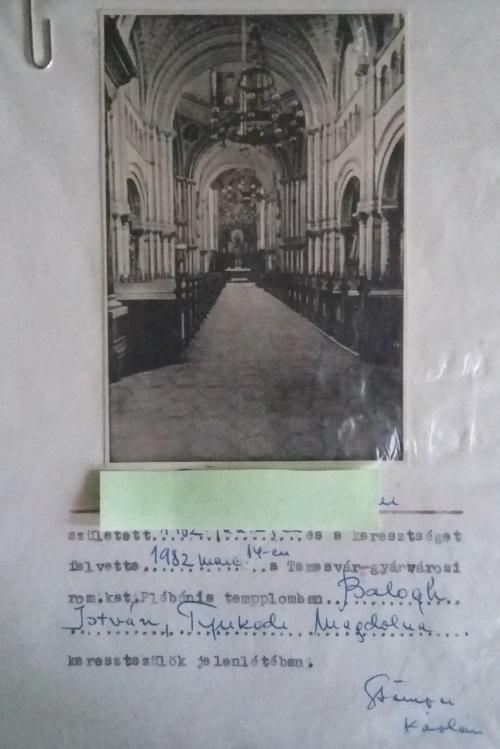 született 1982 és a keresztséget
felvette 1982 14-en a Temesvár-gyárvárosi
rom.kat.Plébánia tempplomban Balogh
István, Tyukodi Magdolna
keresztszülők jelenlétében.
Károly